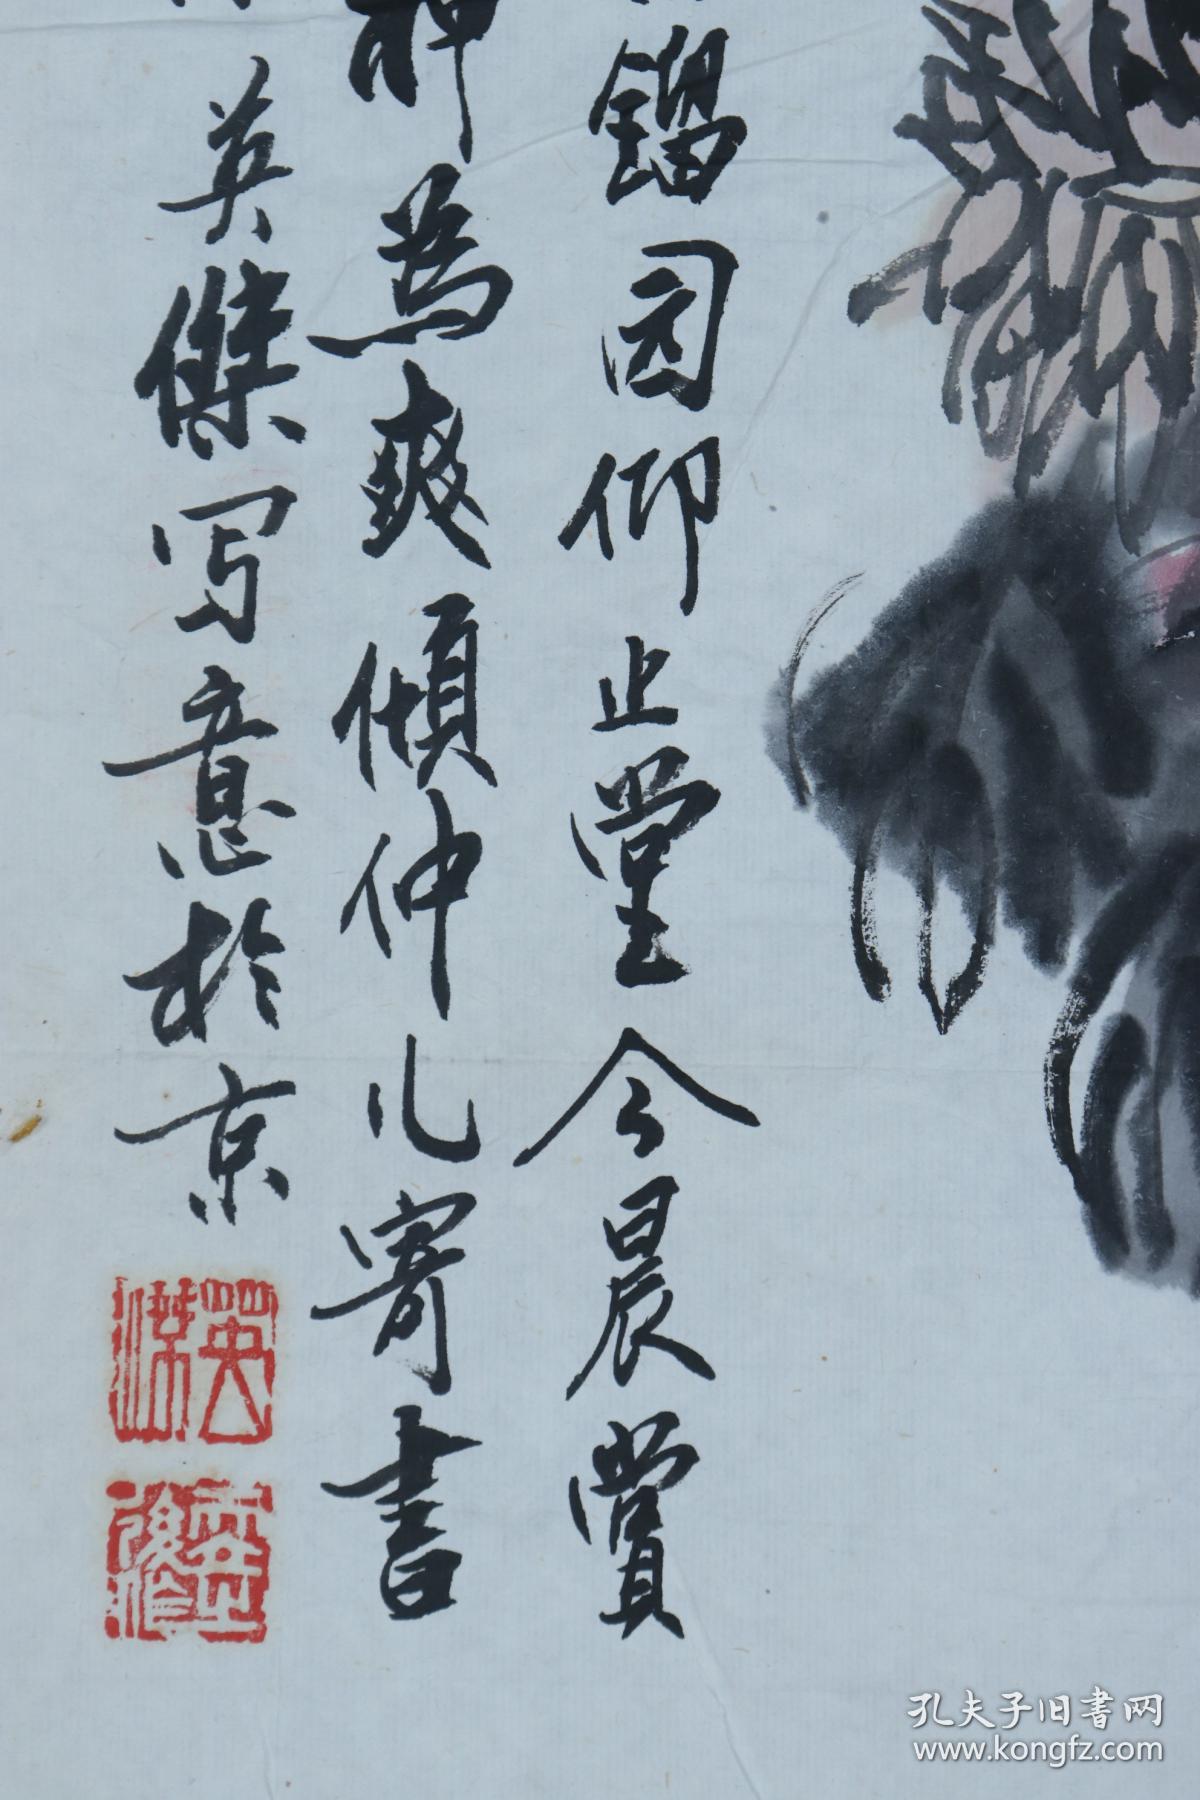 园仰止堂今晨赏
神為爽傾仲儿寄書
英傑写意於京
英傑
孔夫子旧书网
www.kongfz.com